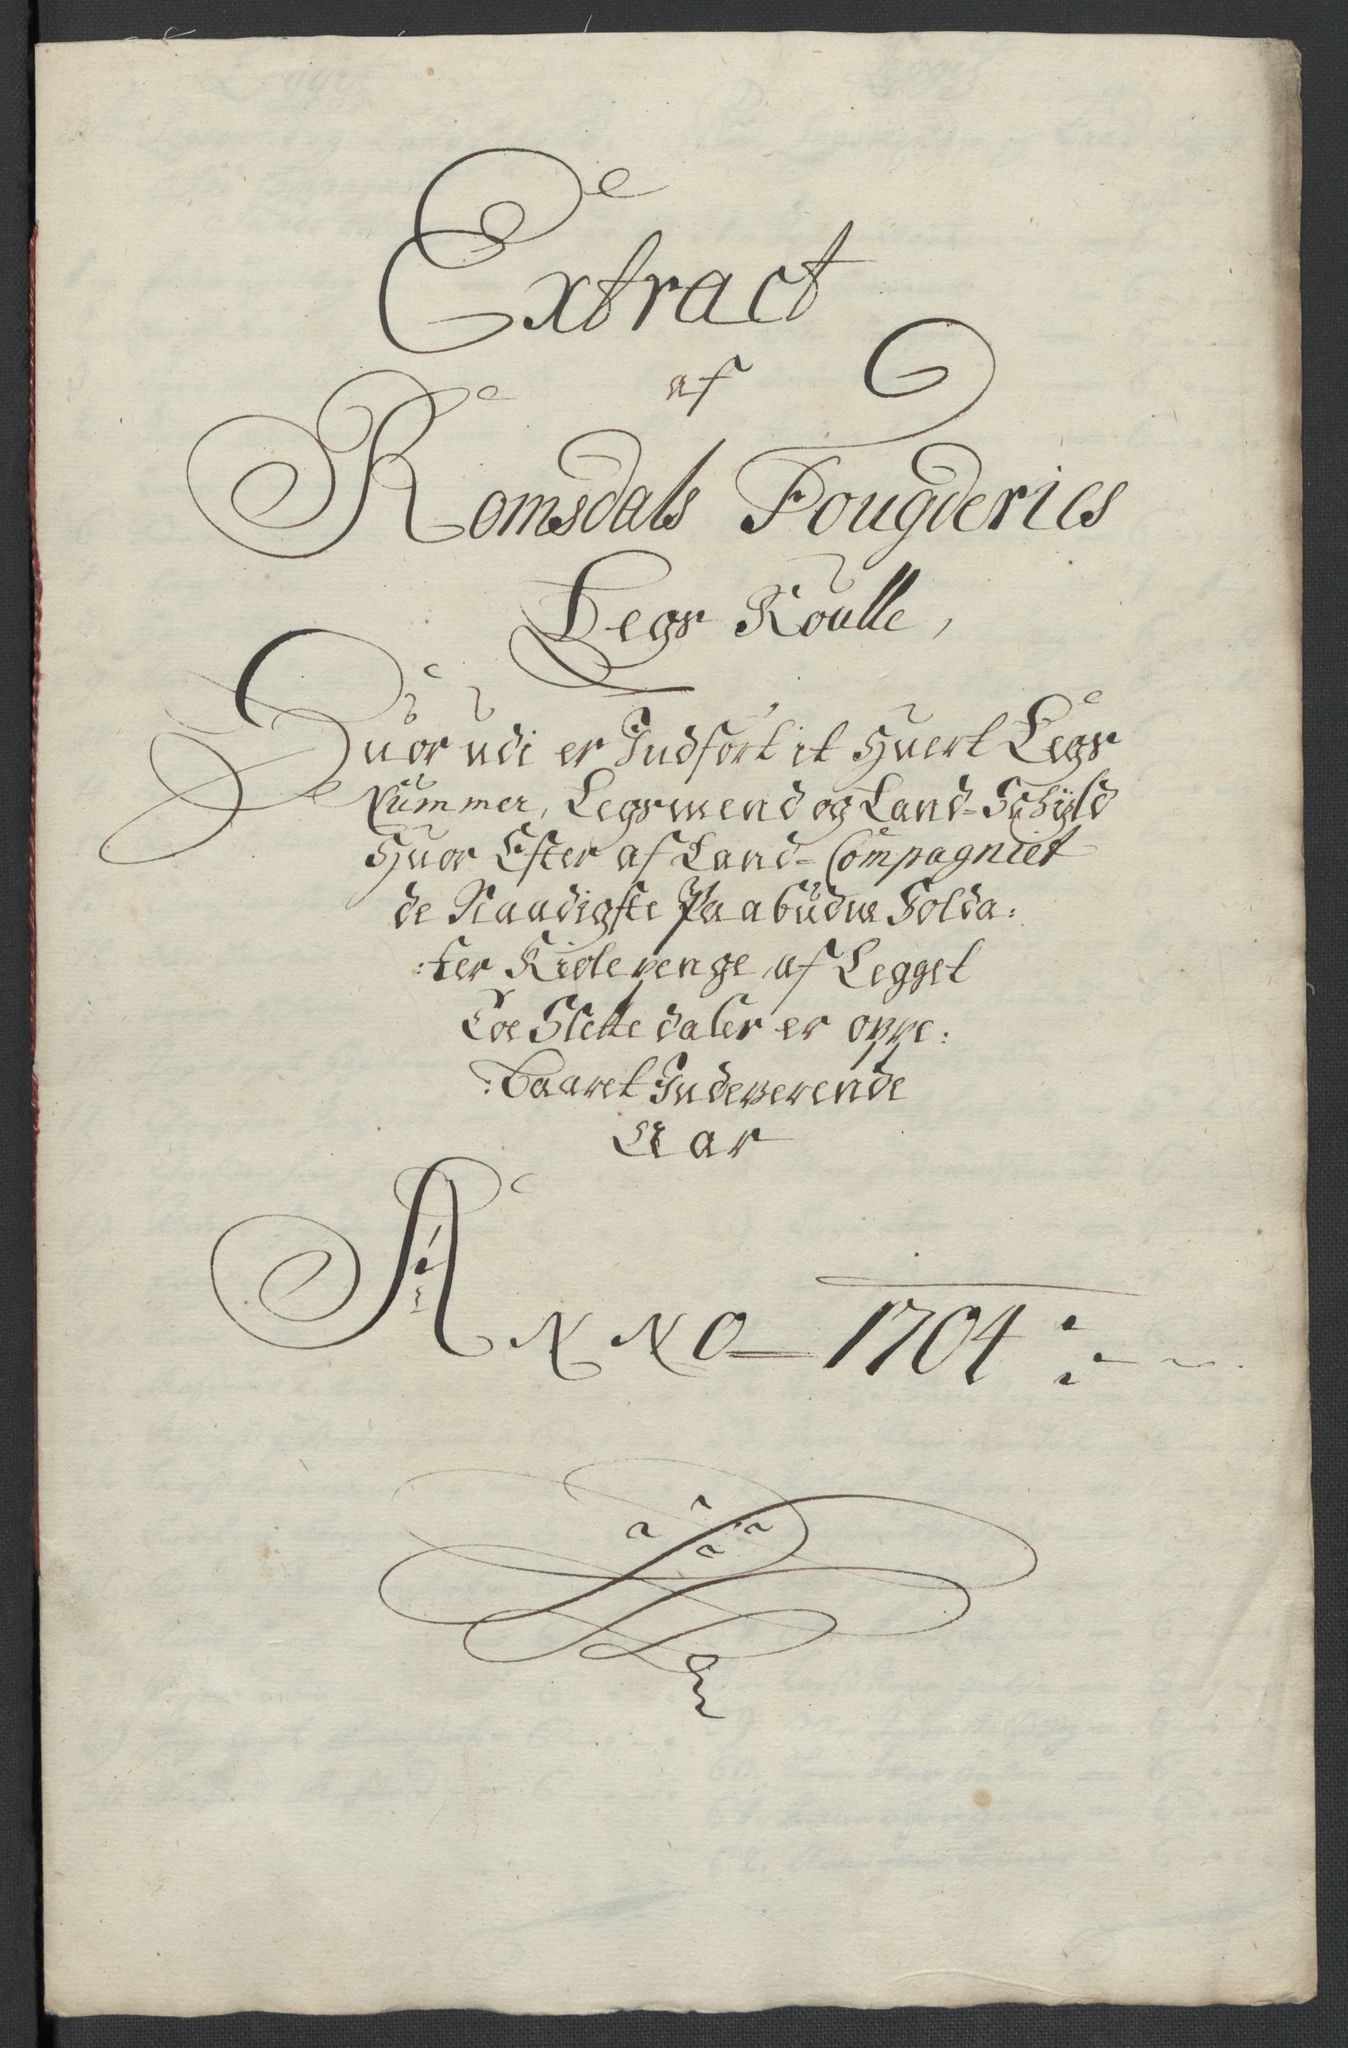 Extract
af
Romsdals Fougderies
Legs Roulle,
Huor udi er Indført it Huert Legs
Nummer, Legsmend og Land-Schyld
Huor Efter af Land-Compagniet
de Naadigste Paabudne Solda:
:ter Kiole penge af Legget
Toe Slette daler er oppe:
:baaret Indeverende
Aar
Anno 1704